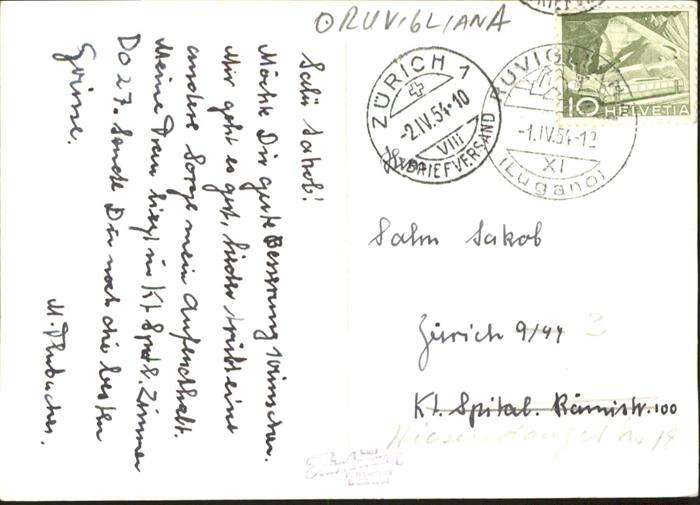 ORUVIGLIANA
Salü Jakob!
Möchte Dir gute Besserung wünschen.
Mir geht es gut, leider trübt eine
andere Sorge mein Aufenthalt.
Meine Frau liegt im Kt. Spital. Zimmer
Do 27. Sende Dir noch die besten
Grüsse.
M.
ZÜRICH 1
-2.IV.54-10
VIII
BRIEFVERSAND
RUVIGLIANA
-1.IV.54-12
XI
(Lugano)
10
HELVETIA
Salm Jakob
Zürich 9/44
Kt. Spital. Rämistr. 100